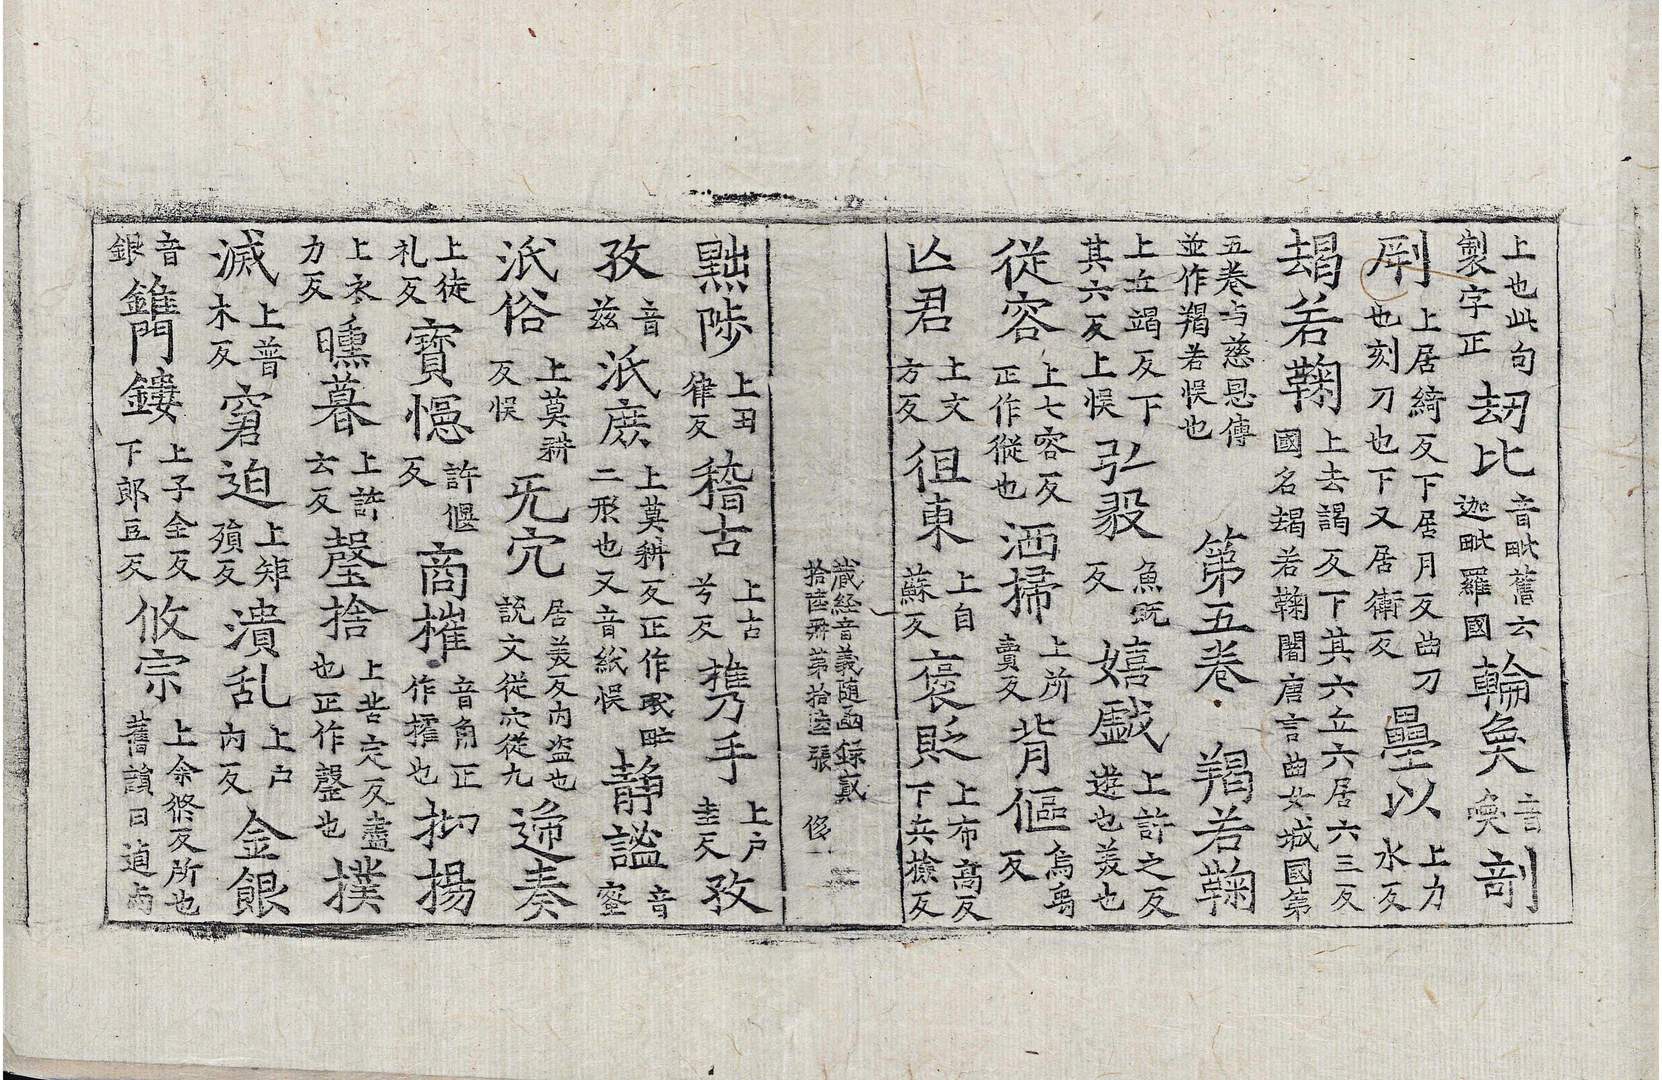 上也此句製字正 刼比 音毗舊云迦毗羅國 輪奐 音喚 剞
剧 上居綺反下居月反曲刀也刻刀也下又居衛反 壘以 上力水反
朅若鞠 上去謁反下其六丘六居六三反國名朅若鞠闍唐言曲女城國第
五卷与慈恩傳並作羯若悮也 第五卷 羯若鞠
上丘竭反下其六反上悮 弘毅 魚既反 嬉戱 上許之反遊也美也
從容 上七容反正作從也 洒掃 上所賣反 背傴 烏禹反
亾君 上文方反 徂東 上自蘇反 褒貶 上布高反下兵撿反
藏経音義随函録貳拾陸冊第拾陸張 俊
黜陟 上丑律反 稽古 上古兮反 携手 上戶圭反 孜
孜 音茲 泯庶 上莫耕反正作氓甿二形也又音紙悮 靜謐 音蜜
泯俗 上莫耕反悮 宄 居美反內盗也說文從穴從九 遞奏
上徒礼反 寳幰 許偃反 商榷 音角正作搉也 抑揚
上衣力反 曛暮 上許云反 罄捨 上苦定反盡也正作罄也 撲
滅 上普木反 窘迫 上矩殞反 潰乱 上戶內反 金銀
音銀 鐫鏤 上子全反下郎豆反 攸宗 上余脩反所也舊韻曰逌而